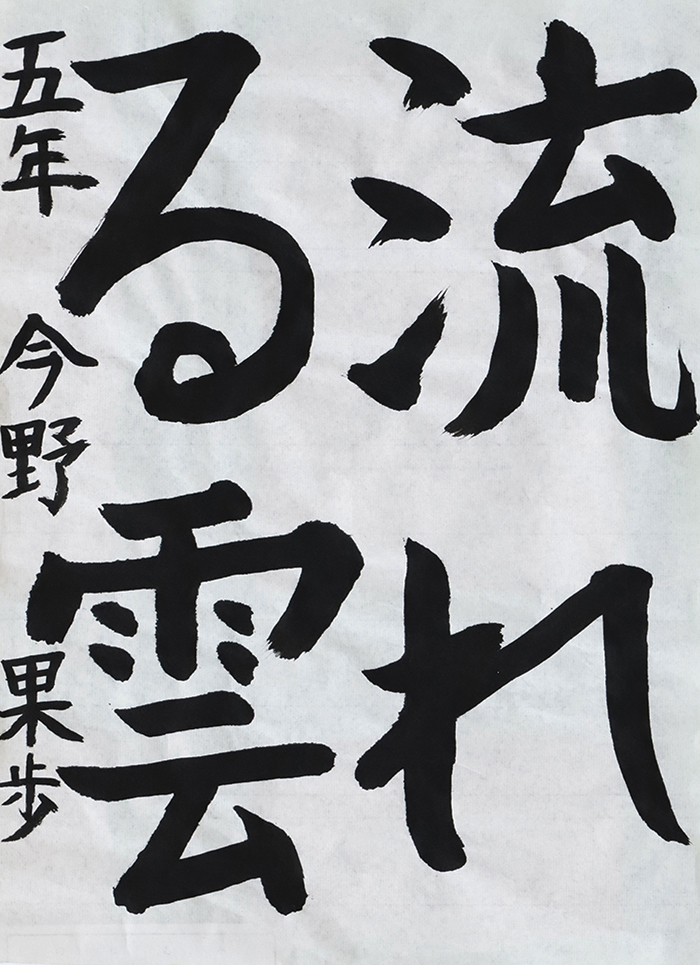 流れ
る雲
五年 今野 果歩